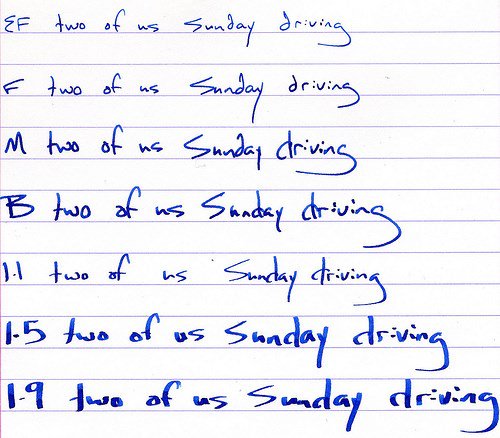 EF two of us Sunday driving
F two of us Sunday driving
M two of us Sunday driving
B two of us Sunday driving
1.1 two of us Sunday driving
1.5 two of us Sunday driving
1.9 two of us Sunday driving